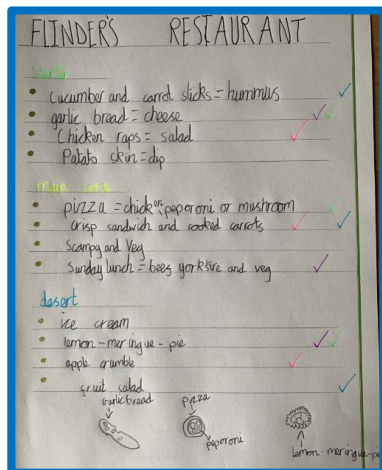 FLINDER'S RESTAURANT
Cucumber and carrot sticks = hummus
garlic bread = cheese
Chicken raps = salad
Patato skin = dip
main
pizza = chicken, peporoni or mushroom
Crisp sandwich and cooked carrots
Scampy and Veg
Sunday lunch = and veg
desert
ice cream
lemon - meringue - pie
apple crumble
fruit salad
garlic bread
pizza
peporoni
lemon - meringue - pi